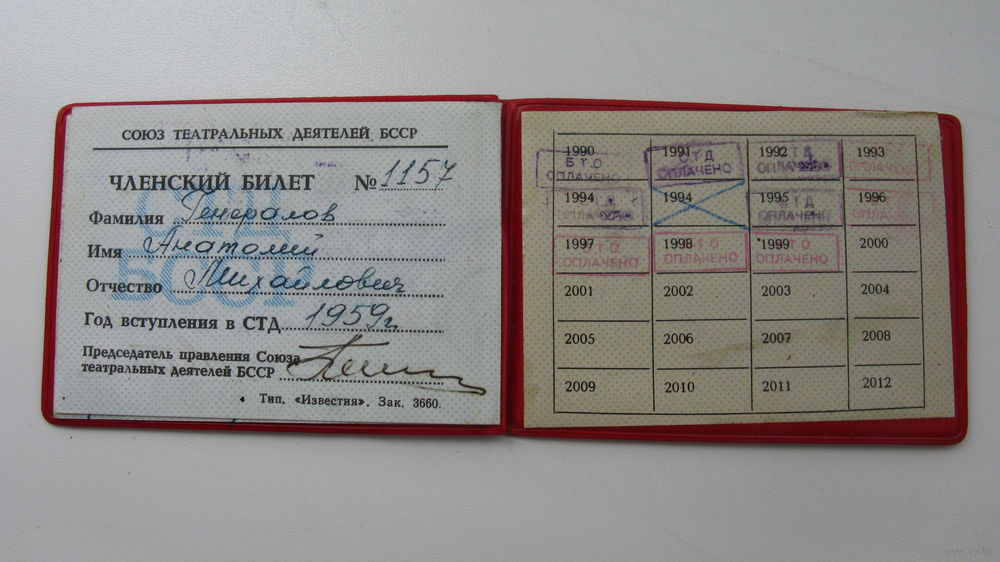 СОЮЗ ТЕАТРАЛЬНЫХ ДЕЯТЕЛЕЙ БССР
ЧЛЕНСКИЙ БИЛЕТ № 1157
СТД
БССР
Фамилия Генералов
Имя Анатолий
Отчество Михайлович
Год вступления в СТД 1959г
Председатель правления Союза
театральных деятелей БССР
Тип. «Известия». Зак. 3660.
1990 1991 1992 1993
БТО СТД СТД
ОПЛАЧЕНО ОПЛАЧЕНО ОПЛАЧЕНО
1994 1994 1995 1996
СТД
ОПЛАЧЕНО
1997 1998 1999 2000
БТО БТО БТО
ОПЛАЧЕНО ОПЛАЧЕНО ОПЛАЧЕНО
2001 2002 2003 2004
2005 2006 2007 2008
2009 2010 2011 2012